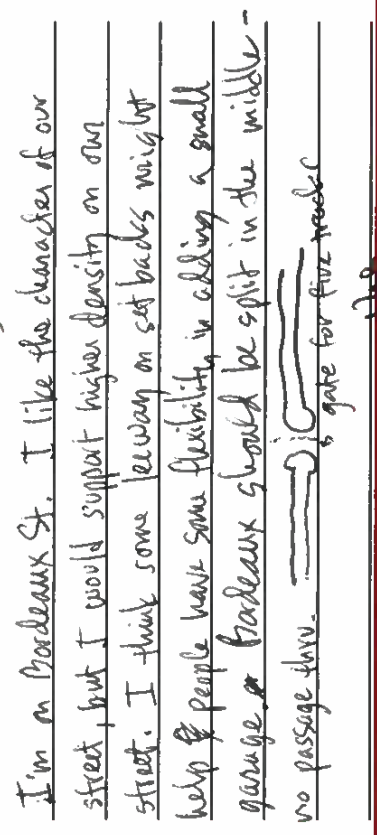 I'm on Bordeaux St. I like the character of our
street, but I would support higher density on our
street. I think some leeway on set backs might
help people have some flexibility in adding a small
garage. Bordeaux should be split in the middle -
no passage thru.
gate for fire trucks